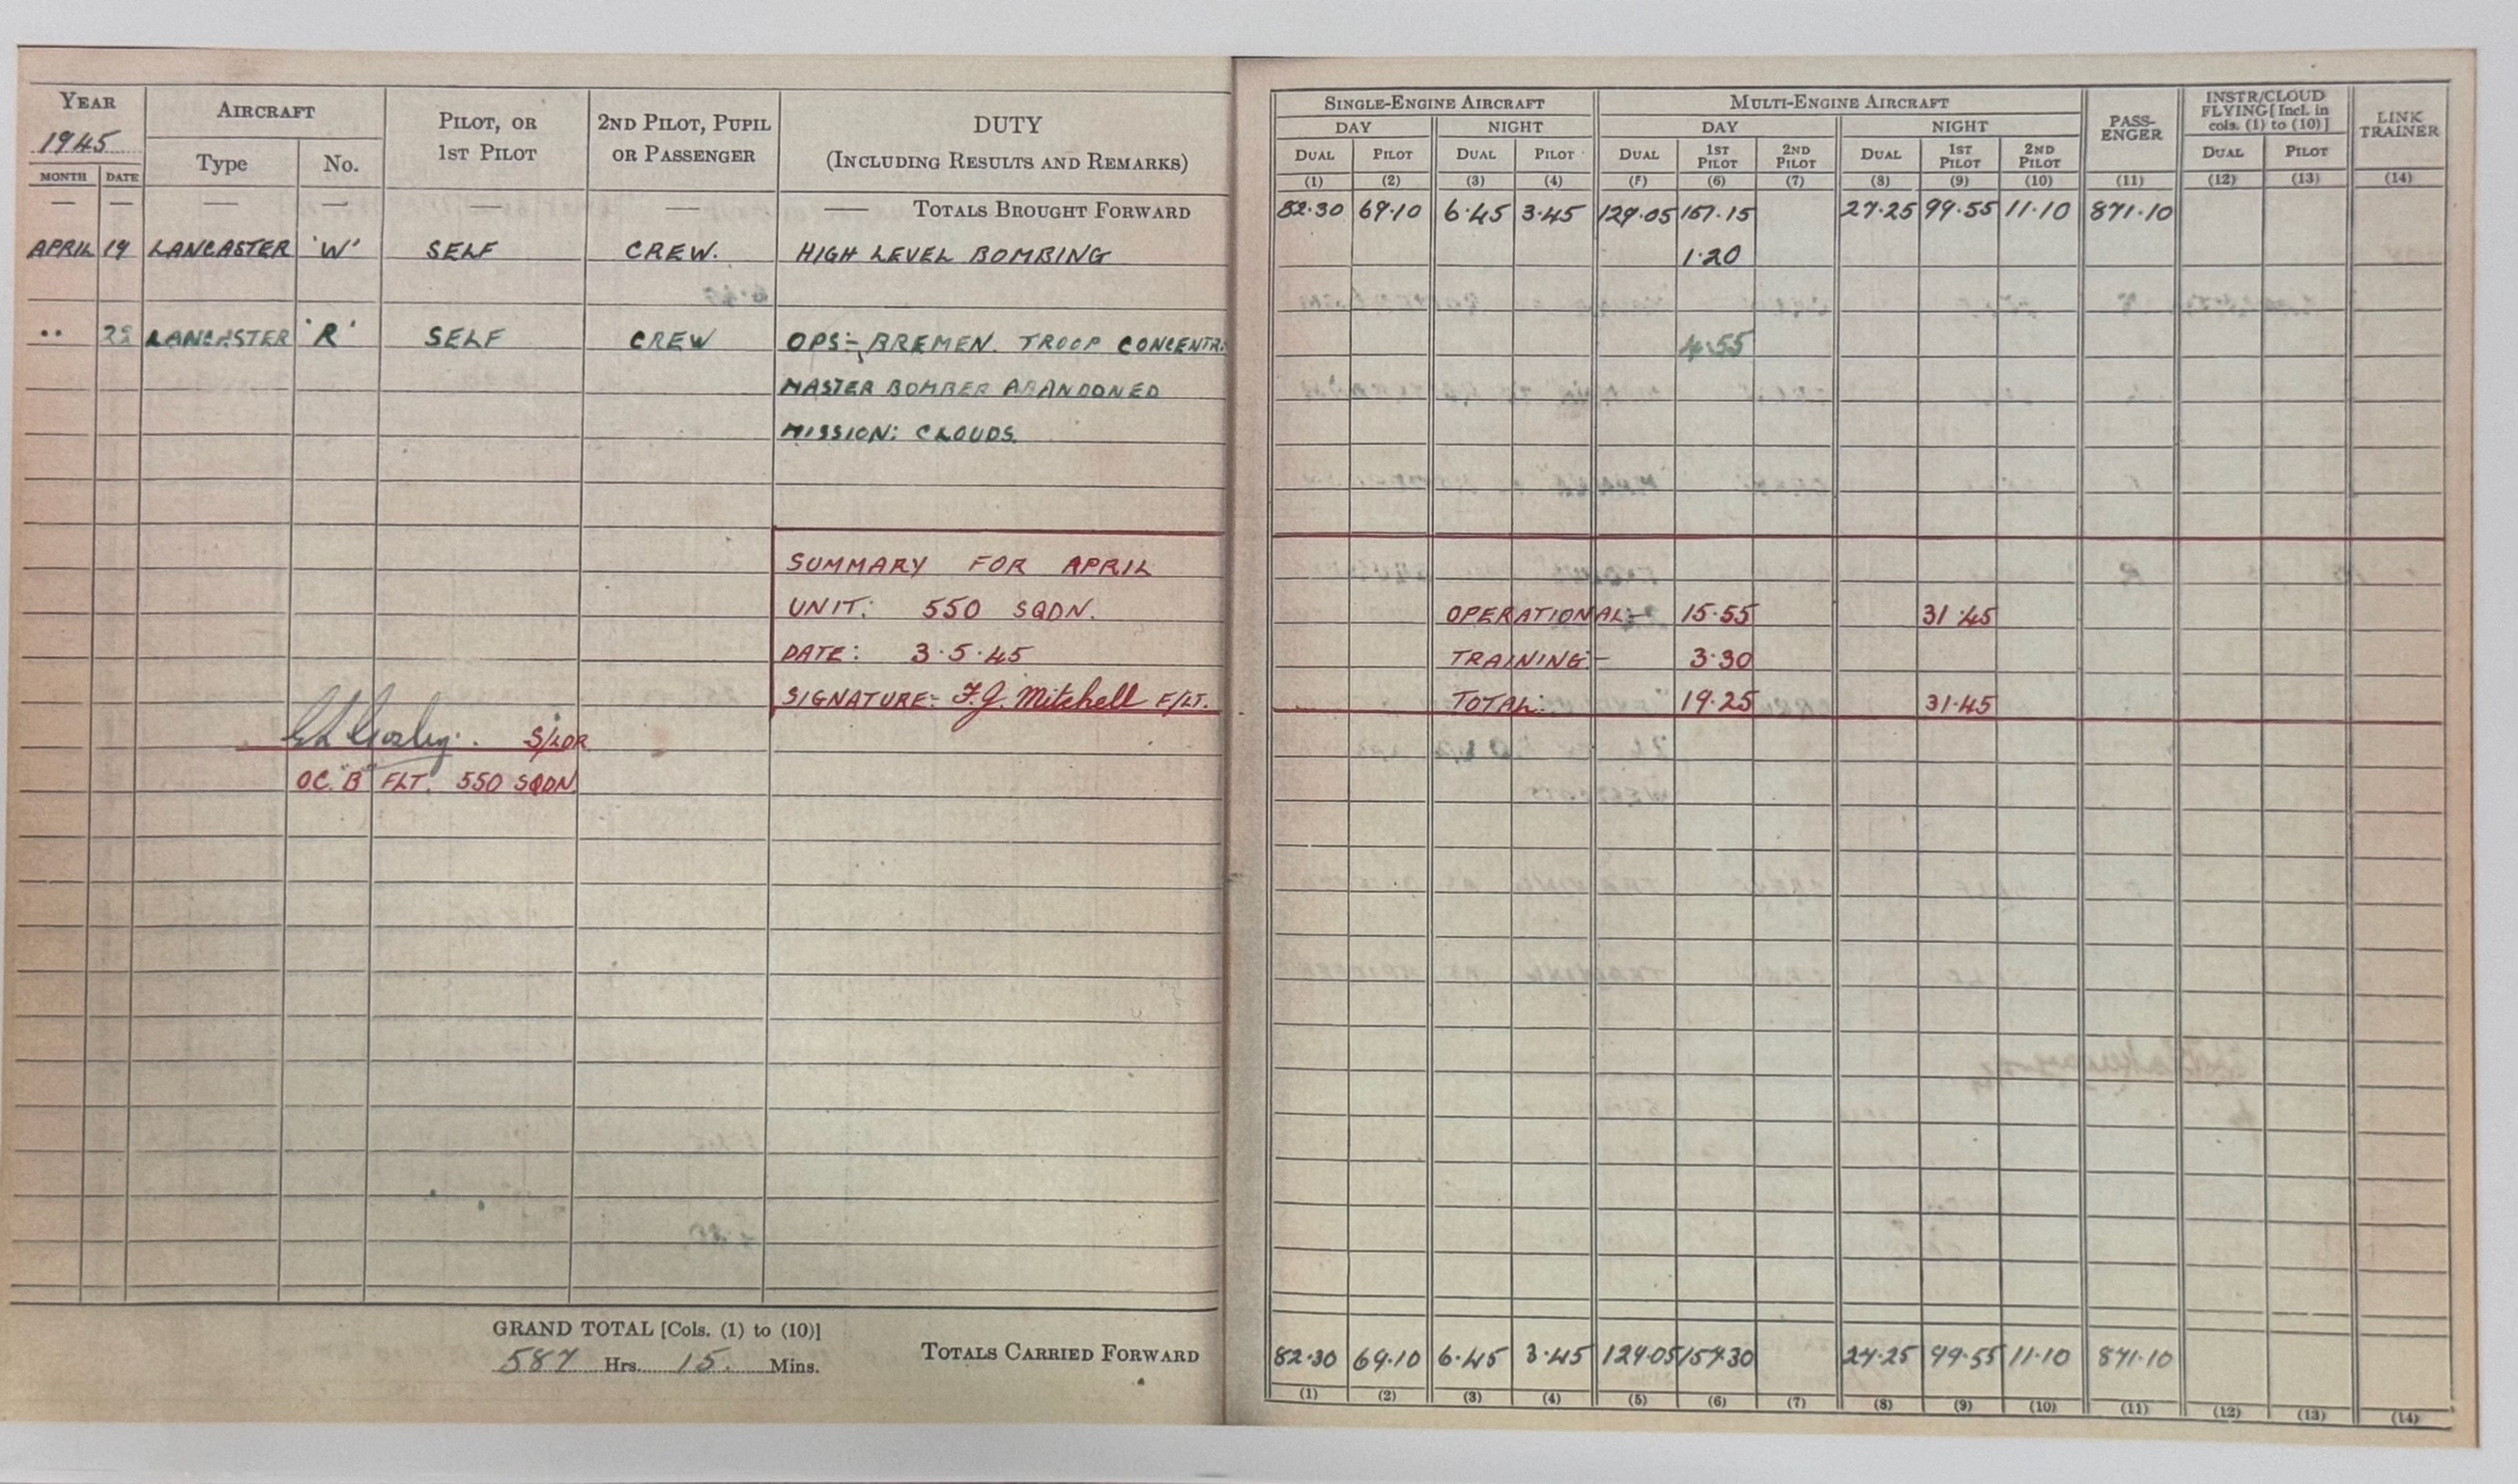 YEAR
1945
MONTH DATE
AIRCRAFT
Type No.
PILOT, OR
1ST PILOT
2ND PILOT, PUPIL
OR PASSENGER
DUTY
(INCLUDING RESULTS AND REMARKS)
SINGLE-ENGINE AIRCRAFT MULTI-ENGINE AIRCRAFT
DAY NIGHT DAY NIGHT
DUAL PILOT DUAL PILOT DUAL 1ST PILOT 2ND PILOT DUAL 1ST PILOT 2ND PILOT
PASS-
ENGER
INSTR/CLOUD
FLYING [Incl. in
cols. (1) to (10)]
DUAL PILOT
LINK
TRAINER
(1) (2) (3) (4) (5) (6) (7) (8) (9) (10) (11) (12) (13) (14)
— — — — — — — TOTALS BROUGHT FORWARD 82.30 69.10 6.45 3.45 129.05 151.15 27.25 99.55 11.10 871.10
APRIL 19 LANCASTER 'W' SELF CREW. HIGH LEVEL BOMBING 1.20
•• 22 LANCASTER 'R' SELF CREW OPS:- BREMEN. TROOP CONCENTR. 4.55
MASTER BOMBER ABANDONED
MISSION: CLOUDS.
SUMMARY FOR APRIL
UNIT: 550 SQDN. OPERATIONAL:- 15.55 31.45
DATE: 3.5.45 TRAINING:- 3.30
SIGNATURE:- F.J. Mitchell F/LT. TOTAL: 19.25 31.45
S/LDR
OC. "B" FLT. 550 SQDN
GRAND TOTAL [Cols. (1) to (10)]
587 Hrs. 15. Mins.
TOTALS CARRIED FORWARD 82.30 69.10 6.45 3.45 129.05 157.30 27.25 99.55 11.10 871.10
(1) (2) (3) (4) (5) (6) (7) (8) (9) (10) (11) (12) (13) (14)